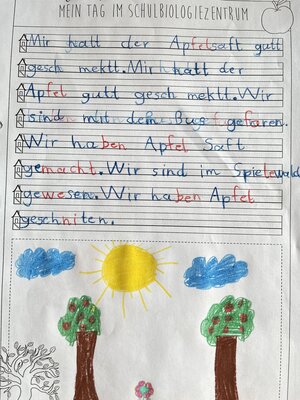 MEIN TAG IM SCHULBIOLOGIEZENTRUM
Mir hatt der Apfelsaft gutt
gesch mektt. Mir hatt der
Apfel gutt gesch mektt. Wir
sind mit dem Bus gefaren.
Wir haben Apfel Saft
gemacht. Wir sind im Spielewald
gewesen. Wir haben Apfel
geschniten.